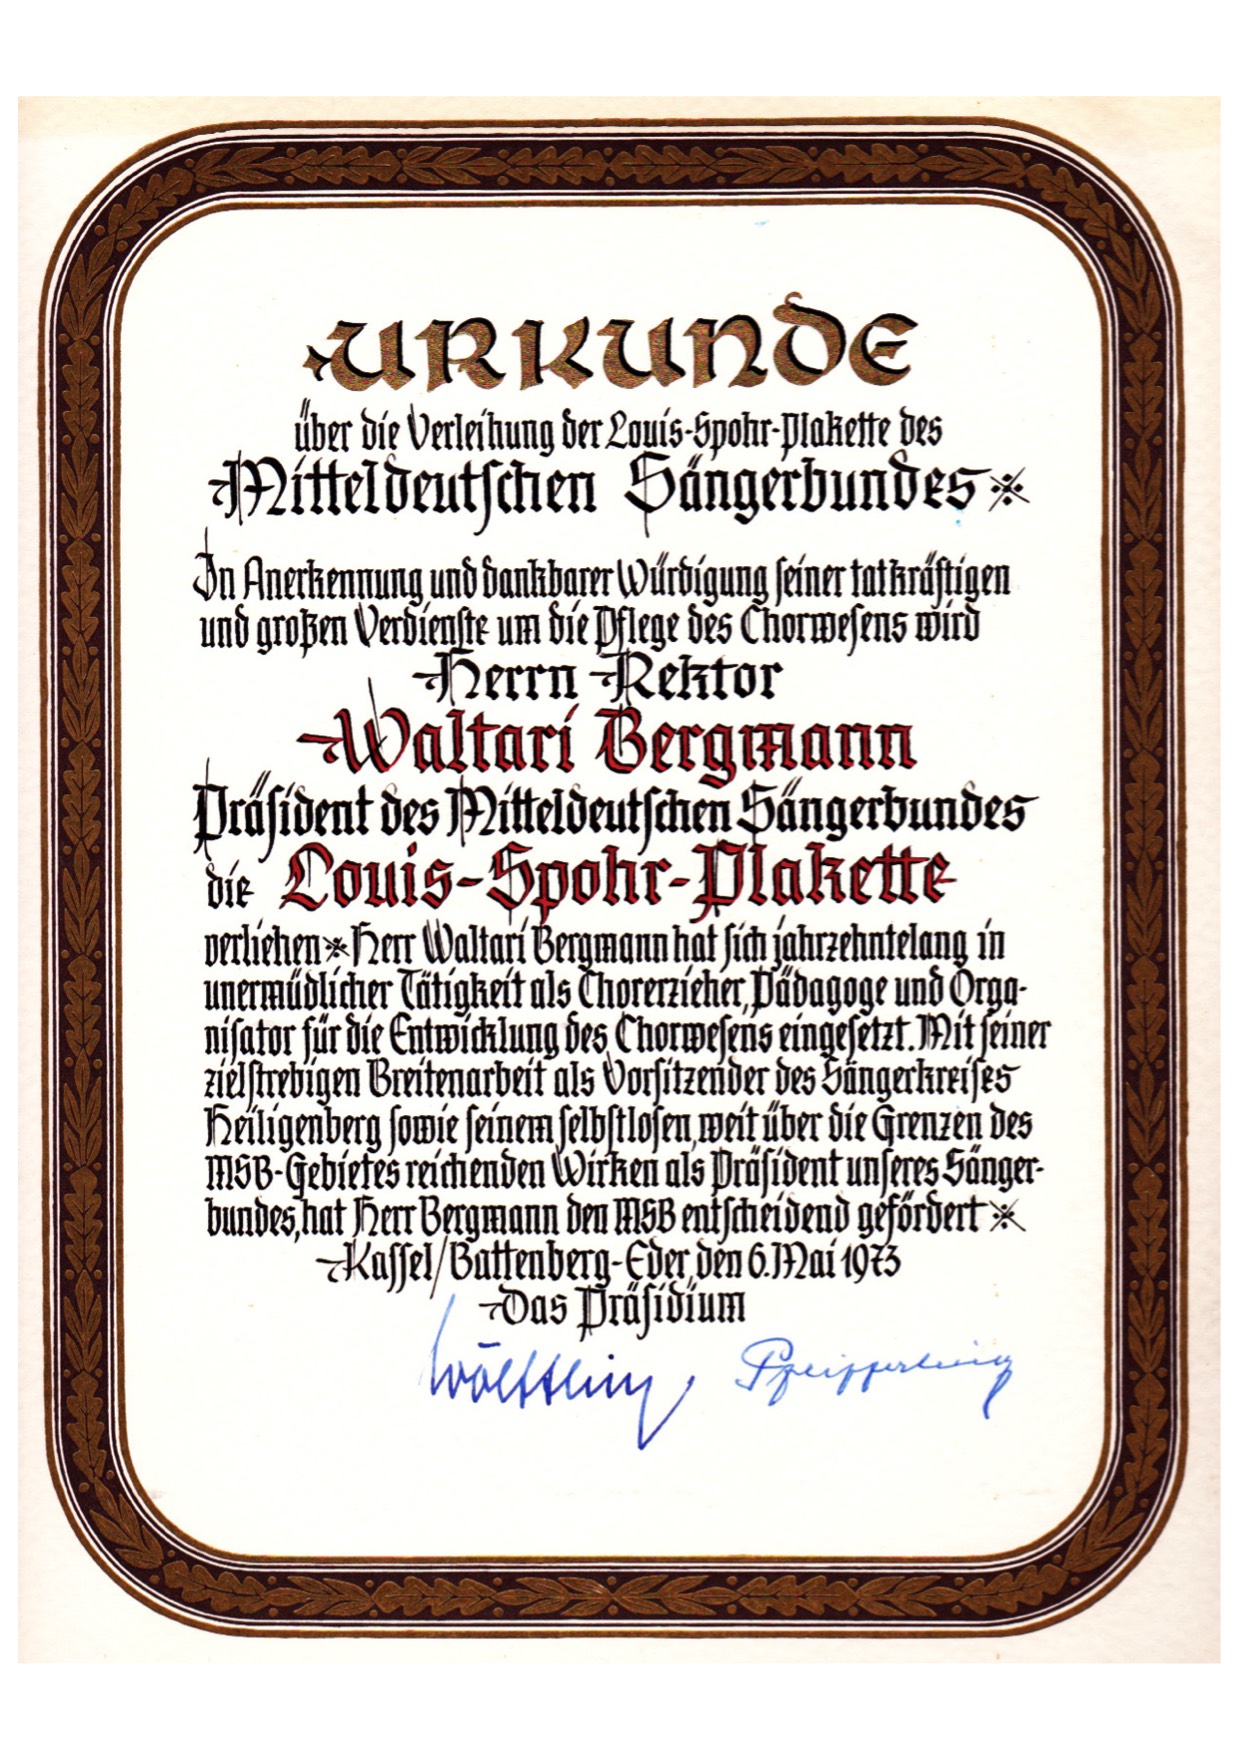 URKUNDE
über die Verleihung der Louis-Spohr-Plakette des
Mitteldeutschen Sängerbundes
In Anerkennung und dankbarer Würdigung seiner tatkräftigen
und großen Verdienste um die Pflege des Chorwesens wird
Herrn Rektor
Waltari Bergmann
Präsident des Mitteldeutschen Sängerbundes
die Louis-Spohr-Plakette
verliehen * Herr Waltari Bergmann hat sich jahrzehntelang in
unermüdlicher Tätigkeit als Chorerzieher, Pädagoge und Orga-
nisator für die Entwicklung des Chorwesens eingesetzt. Mit seiner
zielstrebigen Breitenarbeit als Vorsitzender des Sängerkreises
Heiligenberg sowie seinem selbstlosen, weit über die Grenzen des
MSB-Gebietes reichenden Wirken als Präsident unseres Sänger-
bundes, hat Herr Bergmann den MSB entscheidend gefördert *
Kassel/Battenberg-Eder, den 6. Mai 1973
Das Präsidium